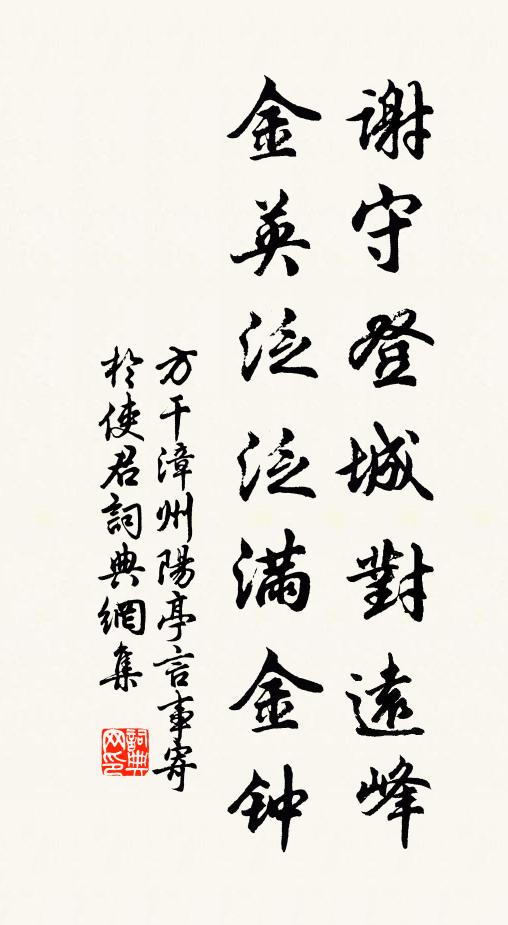 謝守登城對遠峰
金英泛泛滿金钟
方干漳州陽亭言事寄
於使君詞典網集
詞典
网印